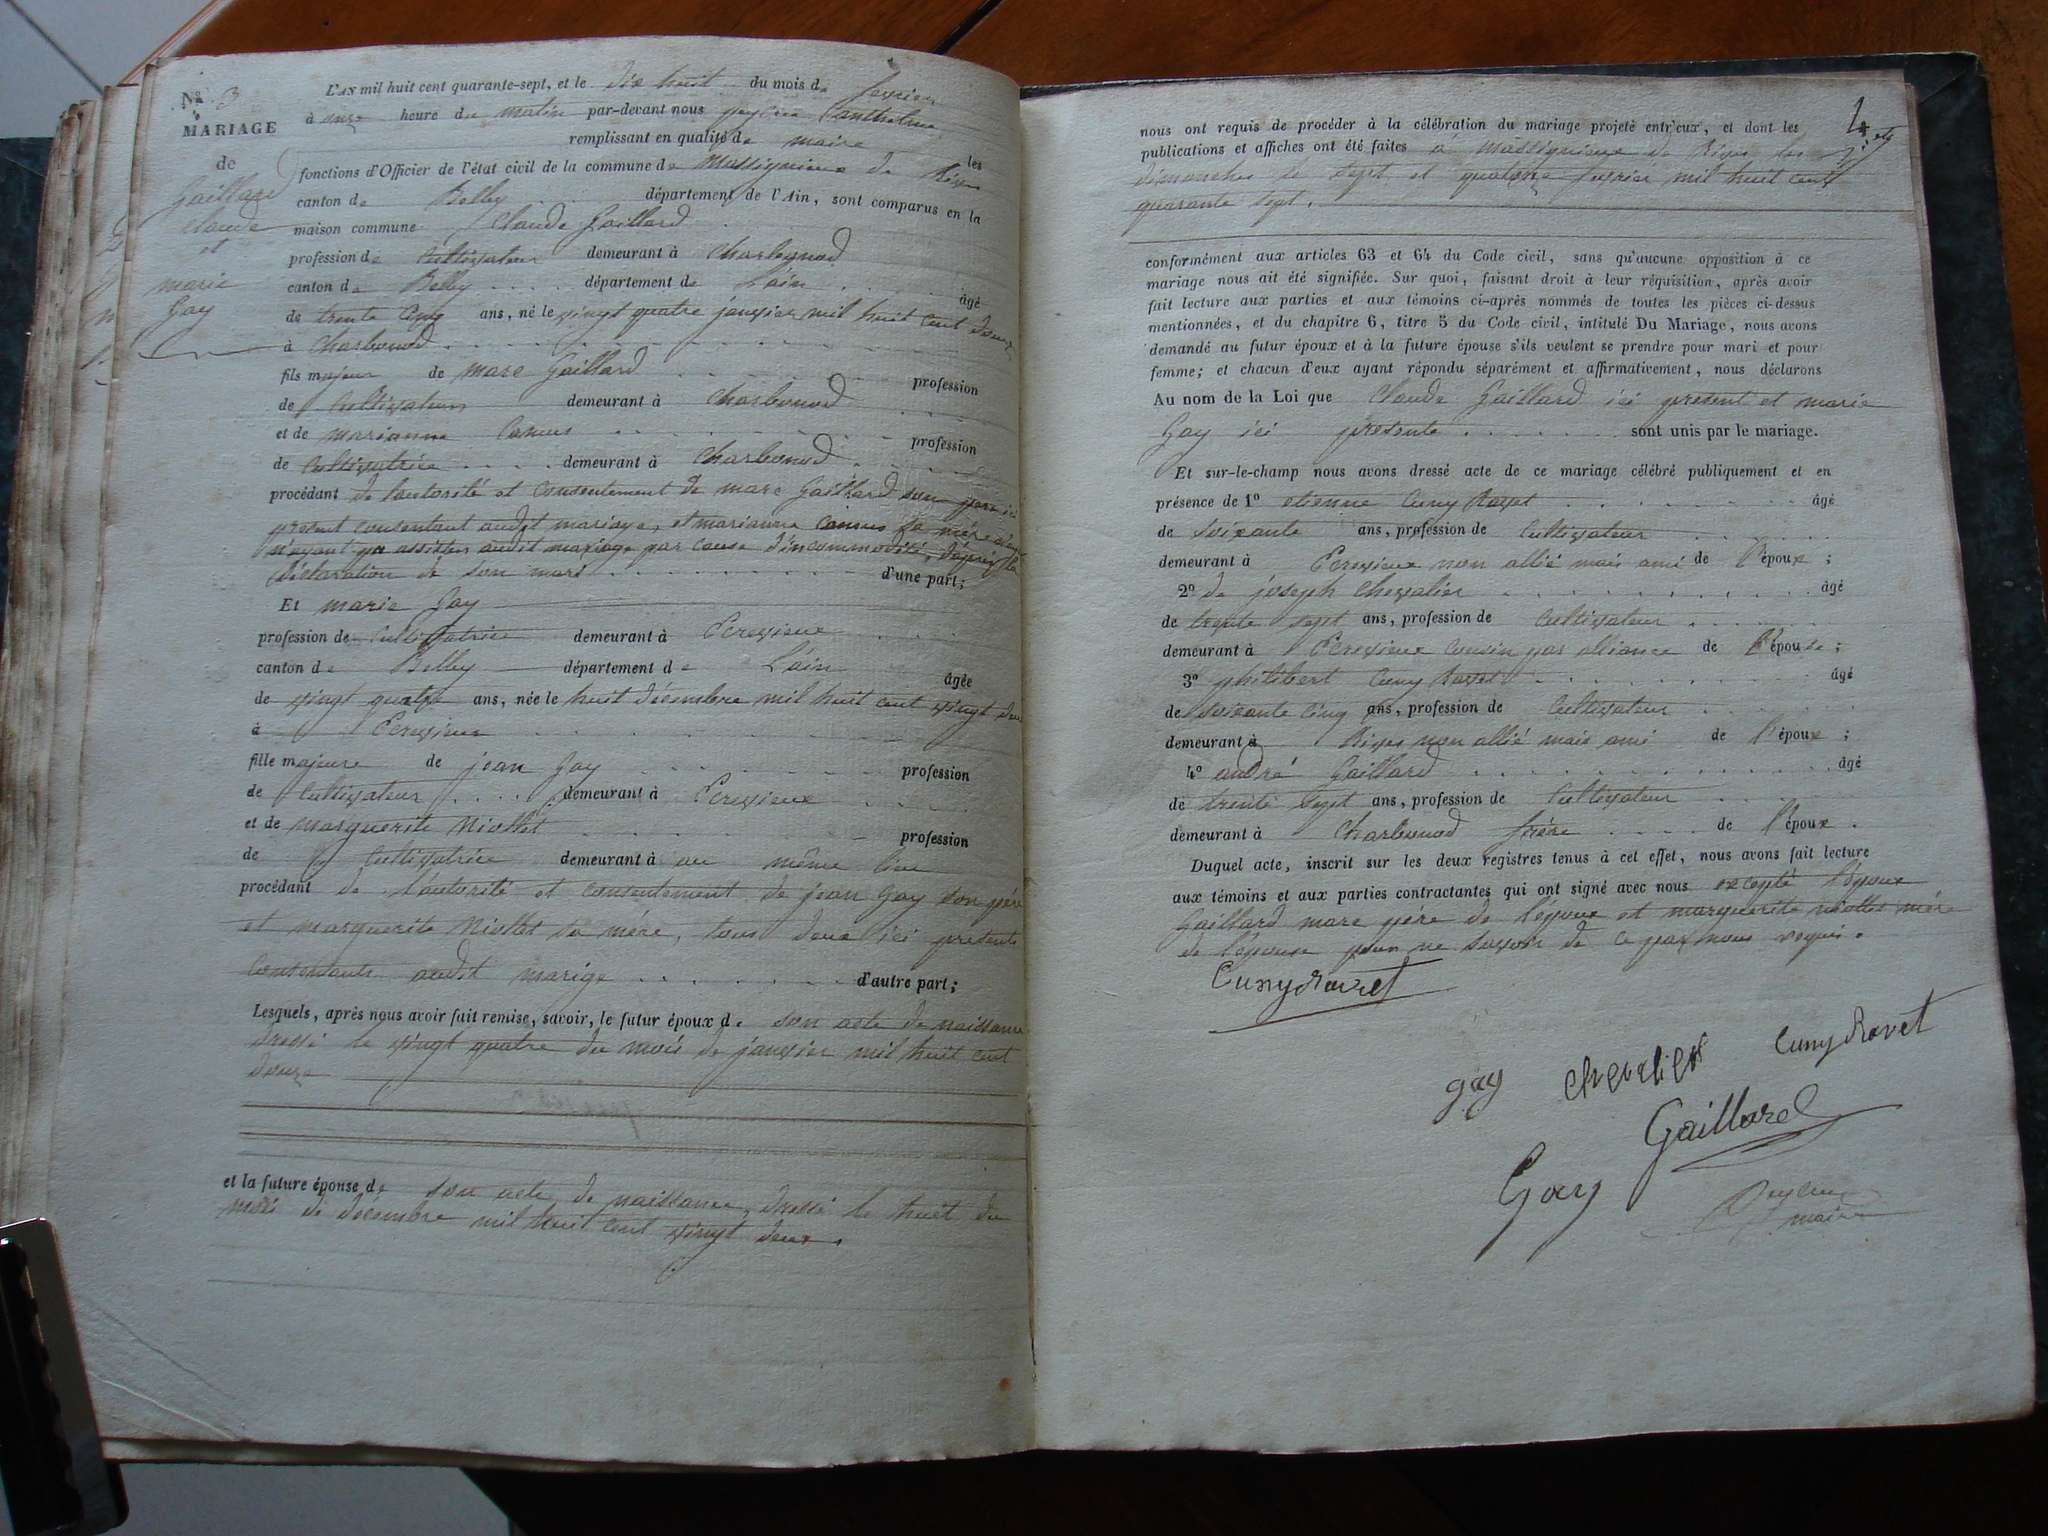 N° 3
MARIAGE
de
Gaillard
Claude
et
marie
Gay
L'AN mil huit cent quarante-sept, et le dix huit du mois de fevrier
à onze heure du matin par-devant nous
remplissant en qualité de maire les
fonctions d'Officier de l'état civil de la commune de Massignieux de Rives
canton de Belley département de l'Ain, sont comparus en la
maison commune Claude Gaillard
profession de Cultivateur demeurant à Charbonod
canton de Belley département de L'ain âgé
de trente cinq ans, né le vingt quatre janvier mil huit cent douze
à Charbonod
fils majeur de marc Gaillard profession
de Cultivateur demeurant à Charbonod
et de marianne Camus profession
de Cultivatrice demeurant à Charbonod
procédant de l'autorité et consentement de marc Gaillard son pere ici
present consentant audit mariage, et marianne Camus sa mère
n'ayant pu assister audit mariage par cause d'incommodité, d'après la
déclaration de son mari d'une part;
Et marie Gay
profession de Cultivatrice demeurant à Ecrevieux
canton de Belley département de L'ain âgée
de vingt quatre ans, née le huit décembre mil huit cent vingt deux
à Ecrevieux
fille majeure de jean Gay profession
de Cultivateur demeurant à Ecrevieux
et de marguerite Niollet profession
de Cultivatrice demeurant à au même lieu
procédant de l'autorité et consentement de jean Gay son père
et marguerite Niollet sa mére, tous deux ici presents
Consentants audit marige d'autre part;
Lesquels, après nous avoir fait remise, savoir, le futur époux de son acte de naissance
dressé le vingt quatre du mois de janvier mil huit cent
douze
et la future épouse de son acte de naissance, dressé le huit du
mois de décembre mil huit cent vingt deux.
nous ont requis de procéder à la célébration du mariage projeté entr'eux, et dont les
publications et affiches ont été faites à Massignieux de Rives les
dimanches le sept et quatorze fevrier mil huit cent
quarante sept.
conformément aux articles 63 et 64 du Code civil, sans qu'aucune opposition à ce
mariage nous ait été signifiée. Sur quoi, faisant droit à leur réquisition, après avoir
fait lecture aux parties et aux témoins ci-après nommés de toutes les pièces ci-dessus
mentionnées, et du chapitre 6, titre 5 du Code civil, intitulé Du Mariage, nous avons
demandé au futur époux et à la future épouse s'ils veulent se prendre pour mari et pour
femme; et chacun d'eux ayant répondu séparément et affirmativement, nous déclarons
Au nom de la Loi que Claude Gaillard ici present et marie
Gay ici presente sont unis par le mariage.
Et sur-le-champ nous avons dressé acte de ce mariage célébré publiquement et en
présence de 1° etienne Cuny Ravet âgé
de soixante ans, profession de Cultivateur
demeurant à Ecrevieux non allié mais ami de l'époux;
2° de joseph Chevalier âgé
de trente sept ans, profession de Cultivateur
demeurant à Ecrevieux Cousin par alliance de l'épouse;
3° philibert Cuny Ravet âgé
de soixante cinq ans, profession de Cultivateur
demeurant à Rives non allié mais ami de l'époux;
4° andré Gaillard âgé
de trente sept ans, profession de Cultivateur
demeurant à Charbonod frére de l'époux.
Duquel acte, inscrit sur les deux registres tenus à cet effet, nous avons fait lecture
aux témoins et aux parties contractantes qui ont signé avec nous excepté l'époux
Gaillard marc père de l'époux et marguerite niollet mére
de l'épouse pour ne savoir de ce par nous requis.
Cuny Ravet
gay chevalier Cuny Ravet
Gaillard
Gay
maire